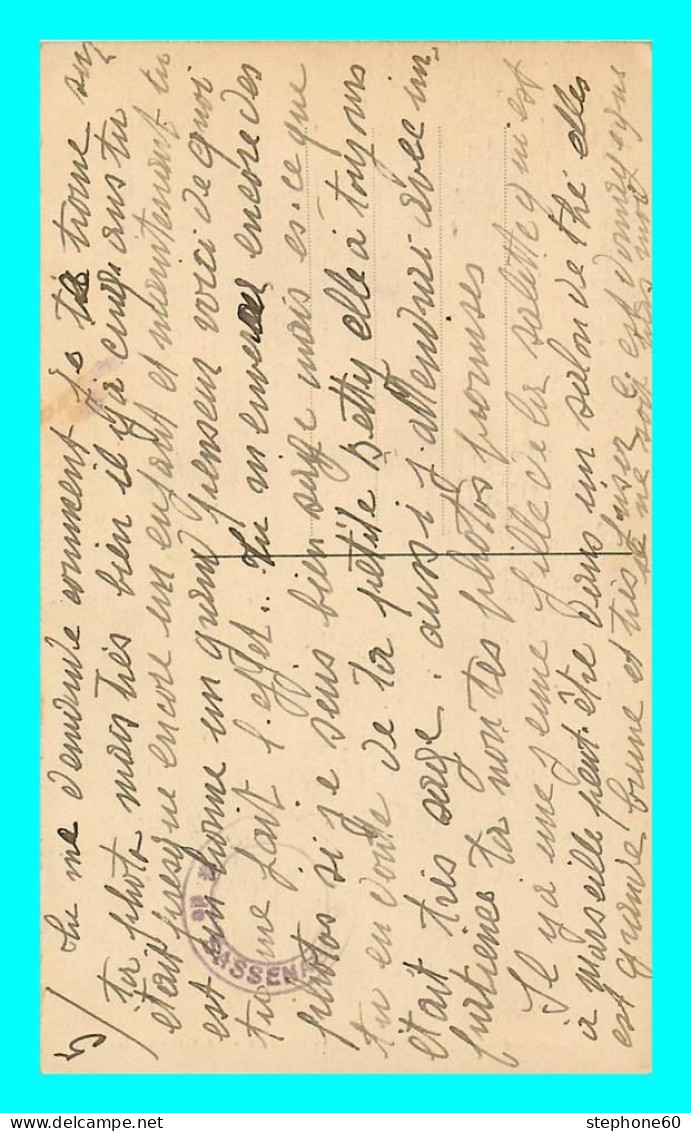 5/ Tu me demande comment je te trouve sur
ta photo mais très bien il y a cinq ans tu
était presque encore un enfant et maintenant tu
est un homme un quand pensent voici de quoi
tu me fait l'effet. Tu m'enverra encore des
photos si je sens bien sage mais es-ce que
tu en doute de ta petite Betty elle à toujours
était très sage. aussi j'attendrai avec im-
patience ta non tes photos promises
Il y a une jeune fille de la salette qui est
à Marseille peut être dans un salon de thé elles
est grande brune et très
ne soit plus moi
de SASSENA
stephone60